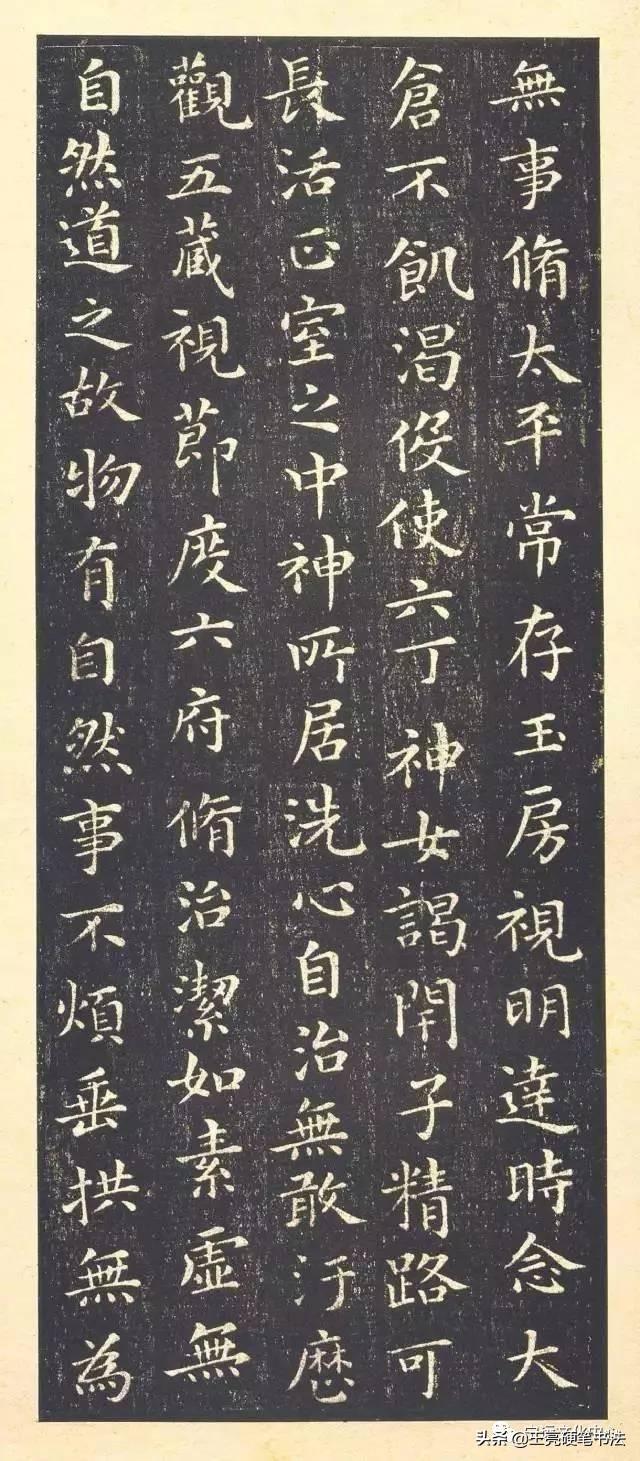 無事脩太平常存玉房視明達時念大
倉不飢渴役使六丁神女謁閉子精路可
長活正室之中神所居洗心自治無敢汙歷
觀五藏視節度六府脩治潔如素虛無
自然道之故物有自然事不煩垂拱無為
头条@王亮硬笔书法